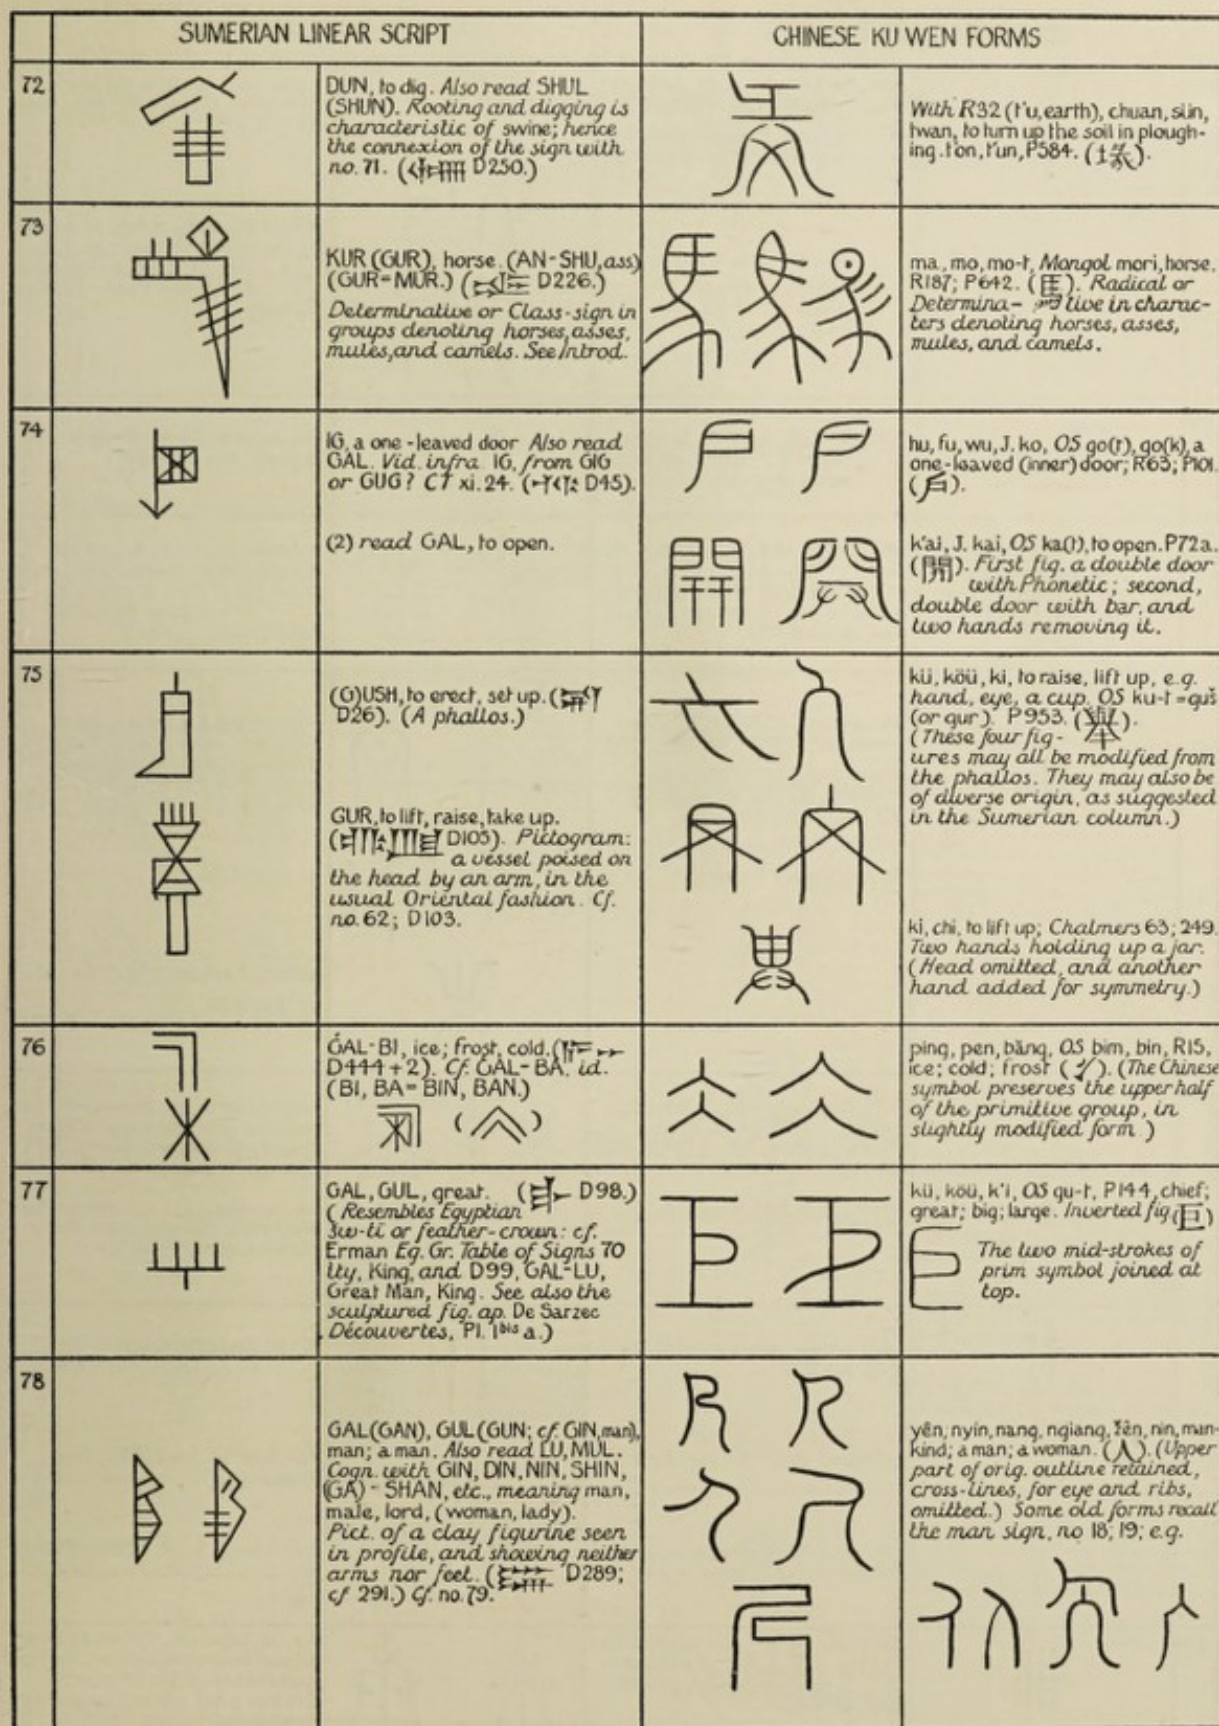 SUMERIAN LINEAR SCRIPT
CHINESE KU WEN FORMS
72
DUN, to dig. Also read SHUL
(SHUN). Rooting and digging is
characteristic of swine; hence
the connexion of the sign with
no. 71. ( D250.)
With R32 (t'u, earth), chuan, sün,
twan, to turn up the soil in plough-
ing. t'on, t'un, P584.
73
KUR (GUR), horse. (AN-SHU, ass)
(GUR=MUR.) ( D226.)
Determinative or Class-sign in
groups denoting horses, asses,
mules, and camels. See Introd.
ma, mo, mo-t, Mongol mori, horse.
R187; P642. Radical or
Determina- tive in charac-
ters denoting horses, asses,
mules, and camels.
74
IG, a one-leaved door Also read
GAL. Vid. infra IG, from GIG
or GUG? CT xi. 24. ( D45).
hu, fu, wu, J. ko, OS go(t), go(k), a
one-leaved (inner) door; R63; P101.
(戶).
(2) read GAL, to open.
k'ai, J. kai, OS ka(t), to open. P72a.
(開). First fig. a double door
with Phonetic; second,
double door with bar, and
two hands removing it.
75
(G)USH, to erect, set up. (
D26). (A phallos.)
kü, köü, ki, to raise, lift up, e.g.
hand, eye, a cup. OS ku-t = guš
(or gur). P953. (舉).
(These four fig-
ures may all be modified from
the phallos. They may also be
of diverse origin, as suggested
in the Sumerian column.)
GUR, to lift, raise, take up.
( D105). Pictogram:
a vessel poised on
the head by an arm, in the
usual Oriental fashion. Cf.
no. 62; D103.
ki, chi, to lift up; Chalmers 63; 249.
Two hands holding up a jar.
(Head omitted, and another
hand added for symmetry.)
76
GAL-BI, ice; frost, cold. (
D444+2). Cf. GAL-BA. id.
(BI, BA= BIN, BAN.)
ping, pen, băng, OS bim, bin, R15,
ice; cold; frost (The Chinese
symbol preserves the upper half
of the primitive group, in
slightly modified form.)
77
GAL, GUL, great. ( D98.)
(Resembles Egyptian
šw-ti or feather-crown: cf.
Erman Eg. Gr. Table of Signs 70
ity, King, and D99, GAL-LU,
Great Man, King. See also the
sculptured fig. ap. De Sarzec
Découvertes, Pl. 1bis a.)
kü, köü, k'i, OS gu-t, P144, chief;
great; big; large. Inverted fig (巨)
The two mid-strokes of
prim symbol joined at
top.
78
GAL (GAN), GUL (GUN; cf. GIN, man),
man; a man. Also read LU, MUL.
Cogn. with GIN, DIN, NIN, SHIN,
(GA)-SHAN, etc., meaning man,
male, lord, (woman, lady).
Pict. of a clay figurine seen
in profile, and showing neither
arms nor feet. ( D289;
cf 291.) Cf. no. 79.
yên, nyin, nang, ngiang, nin, man-
kind; a man; a woman. (人). (Upper
part of orig. outline retained,
cross-lines, for eye and ribs,
omitted.) Some old forms recall
the man sign, no 18; 19; e.g.